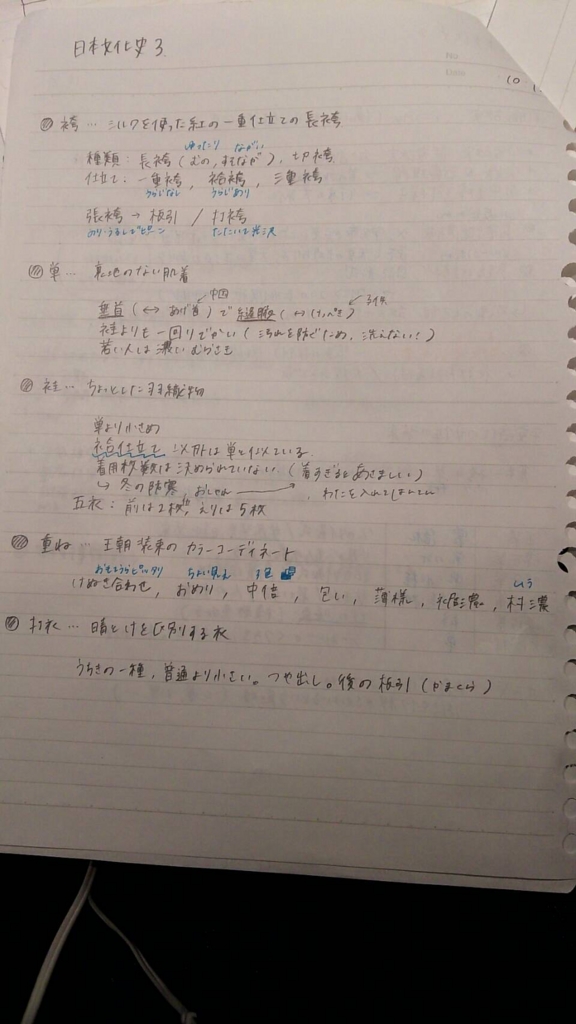 日本文化史 3
10
袴 … シルクを使った紅の一重仕立ての長袴
ゆったり ながい
種類：長袴（むの、すそなが）、切袴
仕立て：一重袴、袷袴、三重袴
うらじなし うらじあり
張袴 → 板引 / 打袴
のり・うるしでピーン たたいて光沢
単 … 裏地のない肌着
中国
垂首（↔ あげ首）で
袿よりも一回りでかい（汚れを防ぐため、洗えない！）
若い人は濃いむらさき
袿 … ちょっとした羽織物
単より小さめ
袷仕立て 以外は単と似ている
着用枚数は決められていない（着すぎるとあさましい）
↳ 冬の防寒、おしゃれ わたを入れて
五衣：前は2枚、えりは5枚
重ね … 王朝装束のカラーコーディネート
おもてうらピッタリ ちょい見え 3色
けぬき合わせ、おめり、中倍、匂い、薄様、裾濃、村濃
ムラ
打衣 … 晴とけをひ別する衣
うちきの一種、普通より小さい。つや出し。後の板引（かまくら）